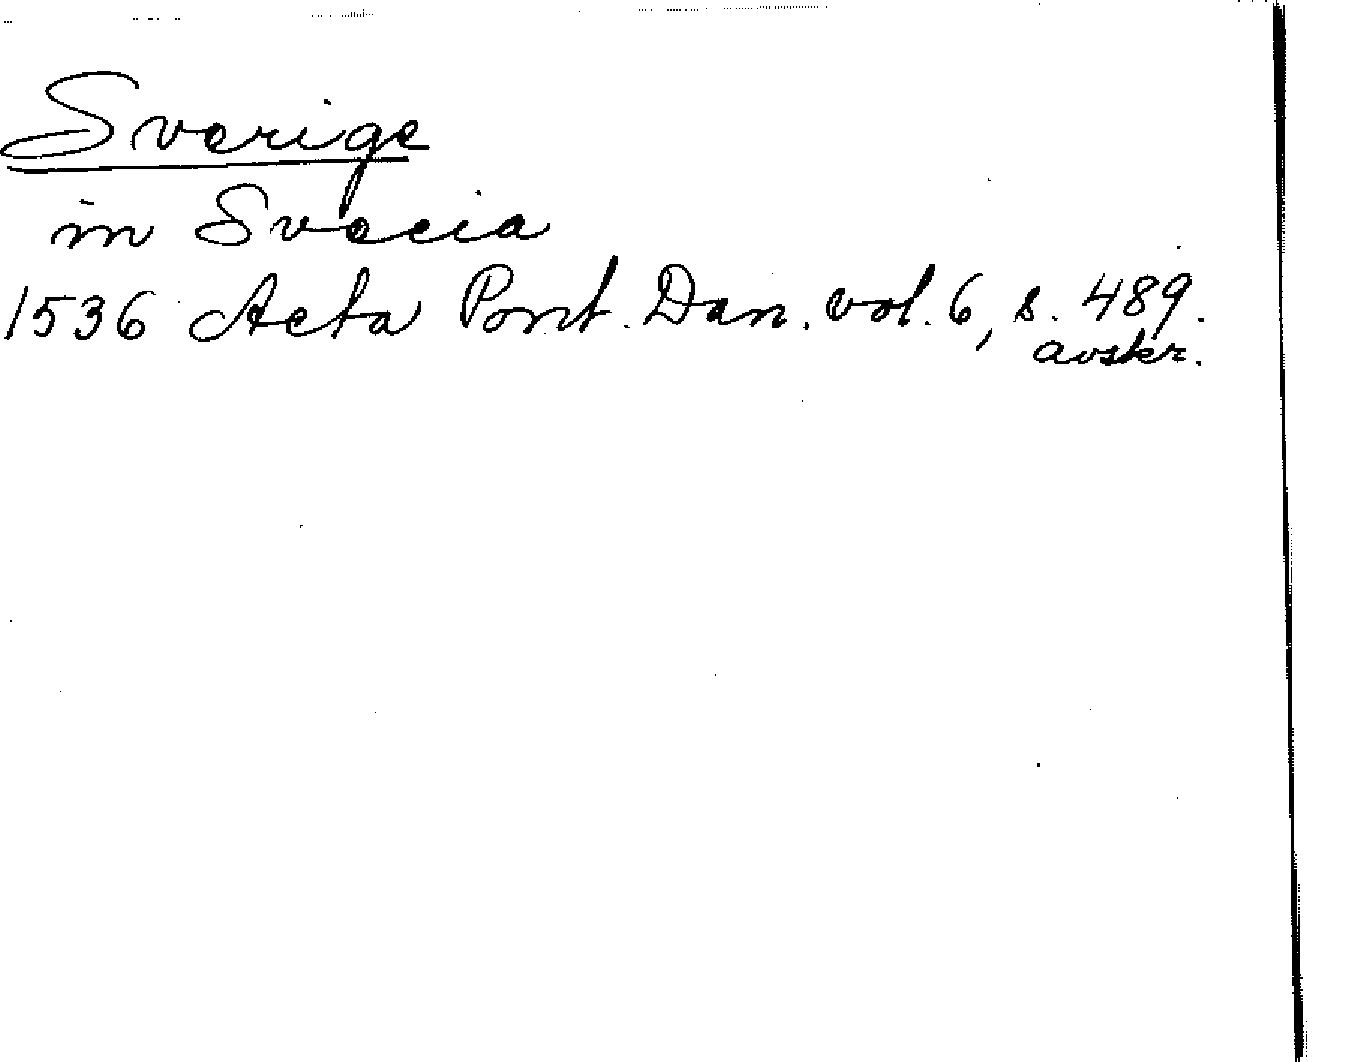 Sverige
in Svecia
1536 Acta Pont. Dan. vol. 6, s. 489.
avskr.